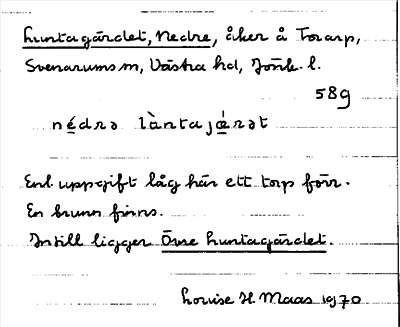 Luntagärdet, Nedre, åker å Torarp,
Svenarums sn, Västra hd, Jönk. l.
589
nédrə làntajæ̀rət
Enl. uppgift låg här ett torp förr.
En brunn finns.
Intill ligger Övre Luntagärdet.
Louise H. Maas 1970